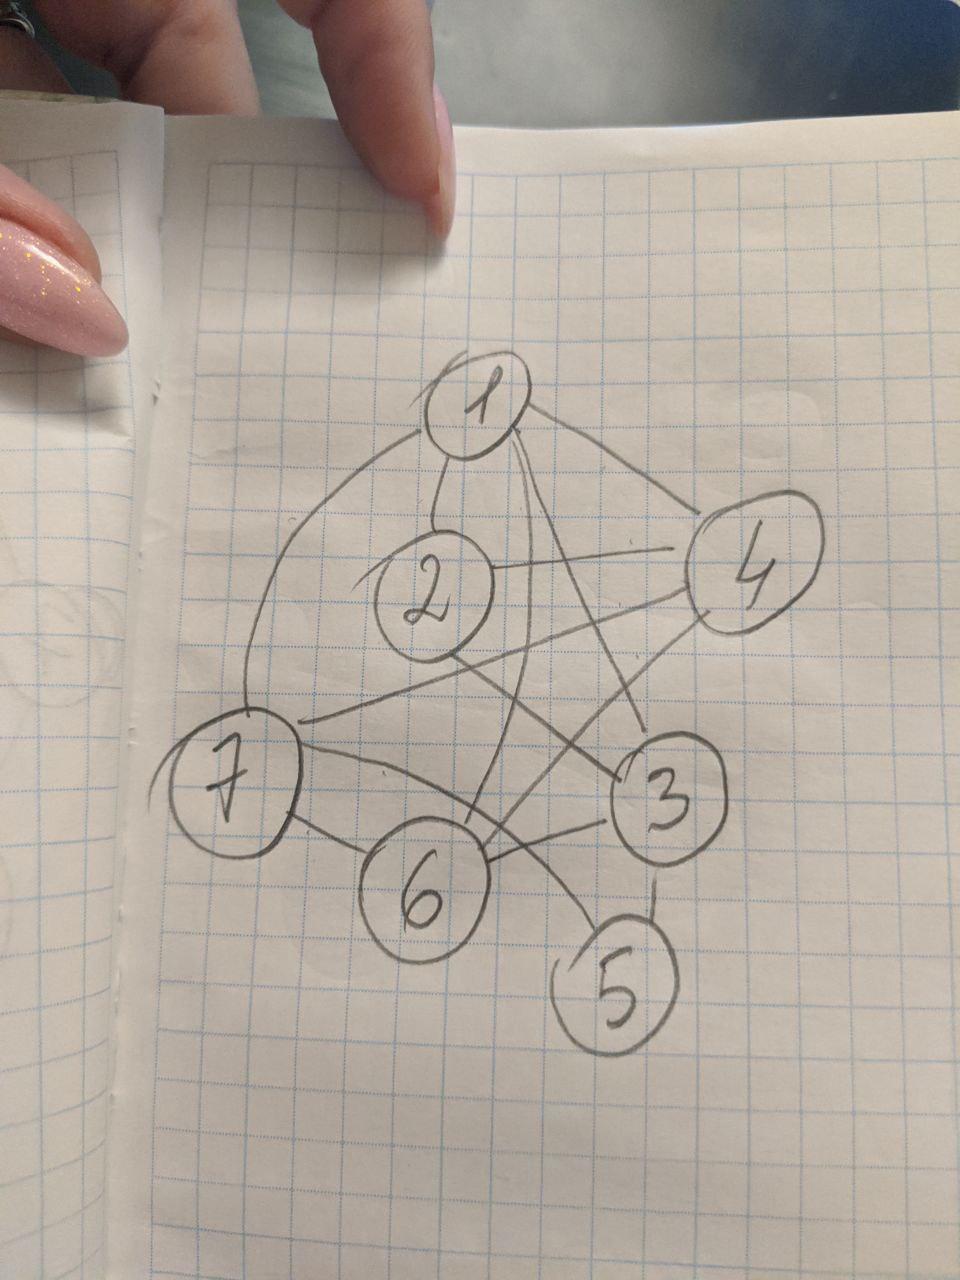 1
2
4
7
3
6
5